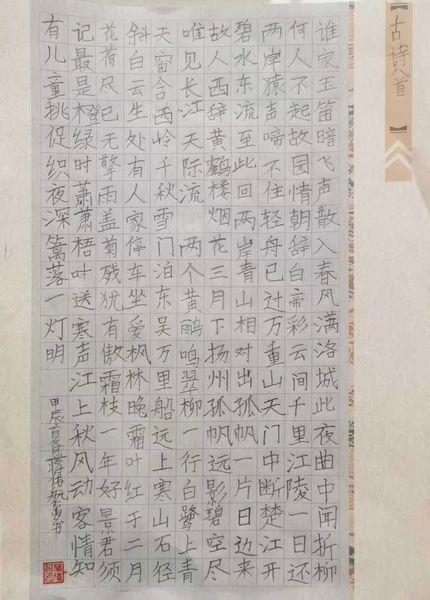 【古诗八首】
谁家玉笛暗飞声散入春风满洛城此夜曲中闻折柳
何人不起故园情朝辞白帝彩云间千里江陵一日还
两岸猿声啼不住轻舟已过万重山天门中断楚江开
碧水东流至此回两岸青山相对出孤帆一片日边来
故人西辞黄鹤楼烟花三月下扬州孤帆远影碧空尽
唯见长江天际流两个黄鹂鸣翠柳一行白鹭上青
天窗含西岭千秋雪门泊东吴万里船远上寒山石径
斜白云生处有人家停车坐爱枫林晚霜叶红于二月
花荷尽已无擎雨盖菊残犹有傲霜枝一年好景君须
记最是橙绿时萧萧梧叶送寒声江上秋风动客情知
有儿童挑促织夜深篱落一灯明
甲辰